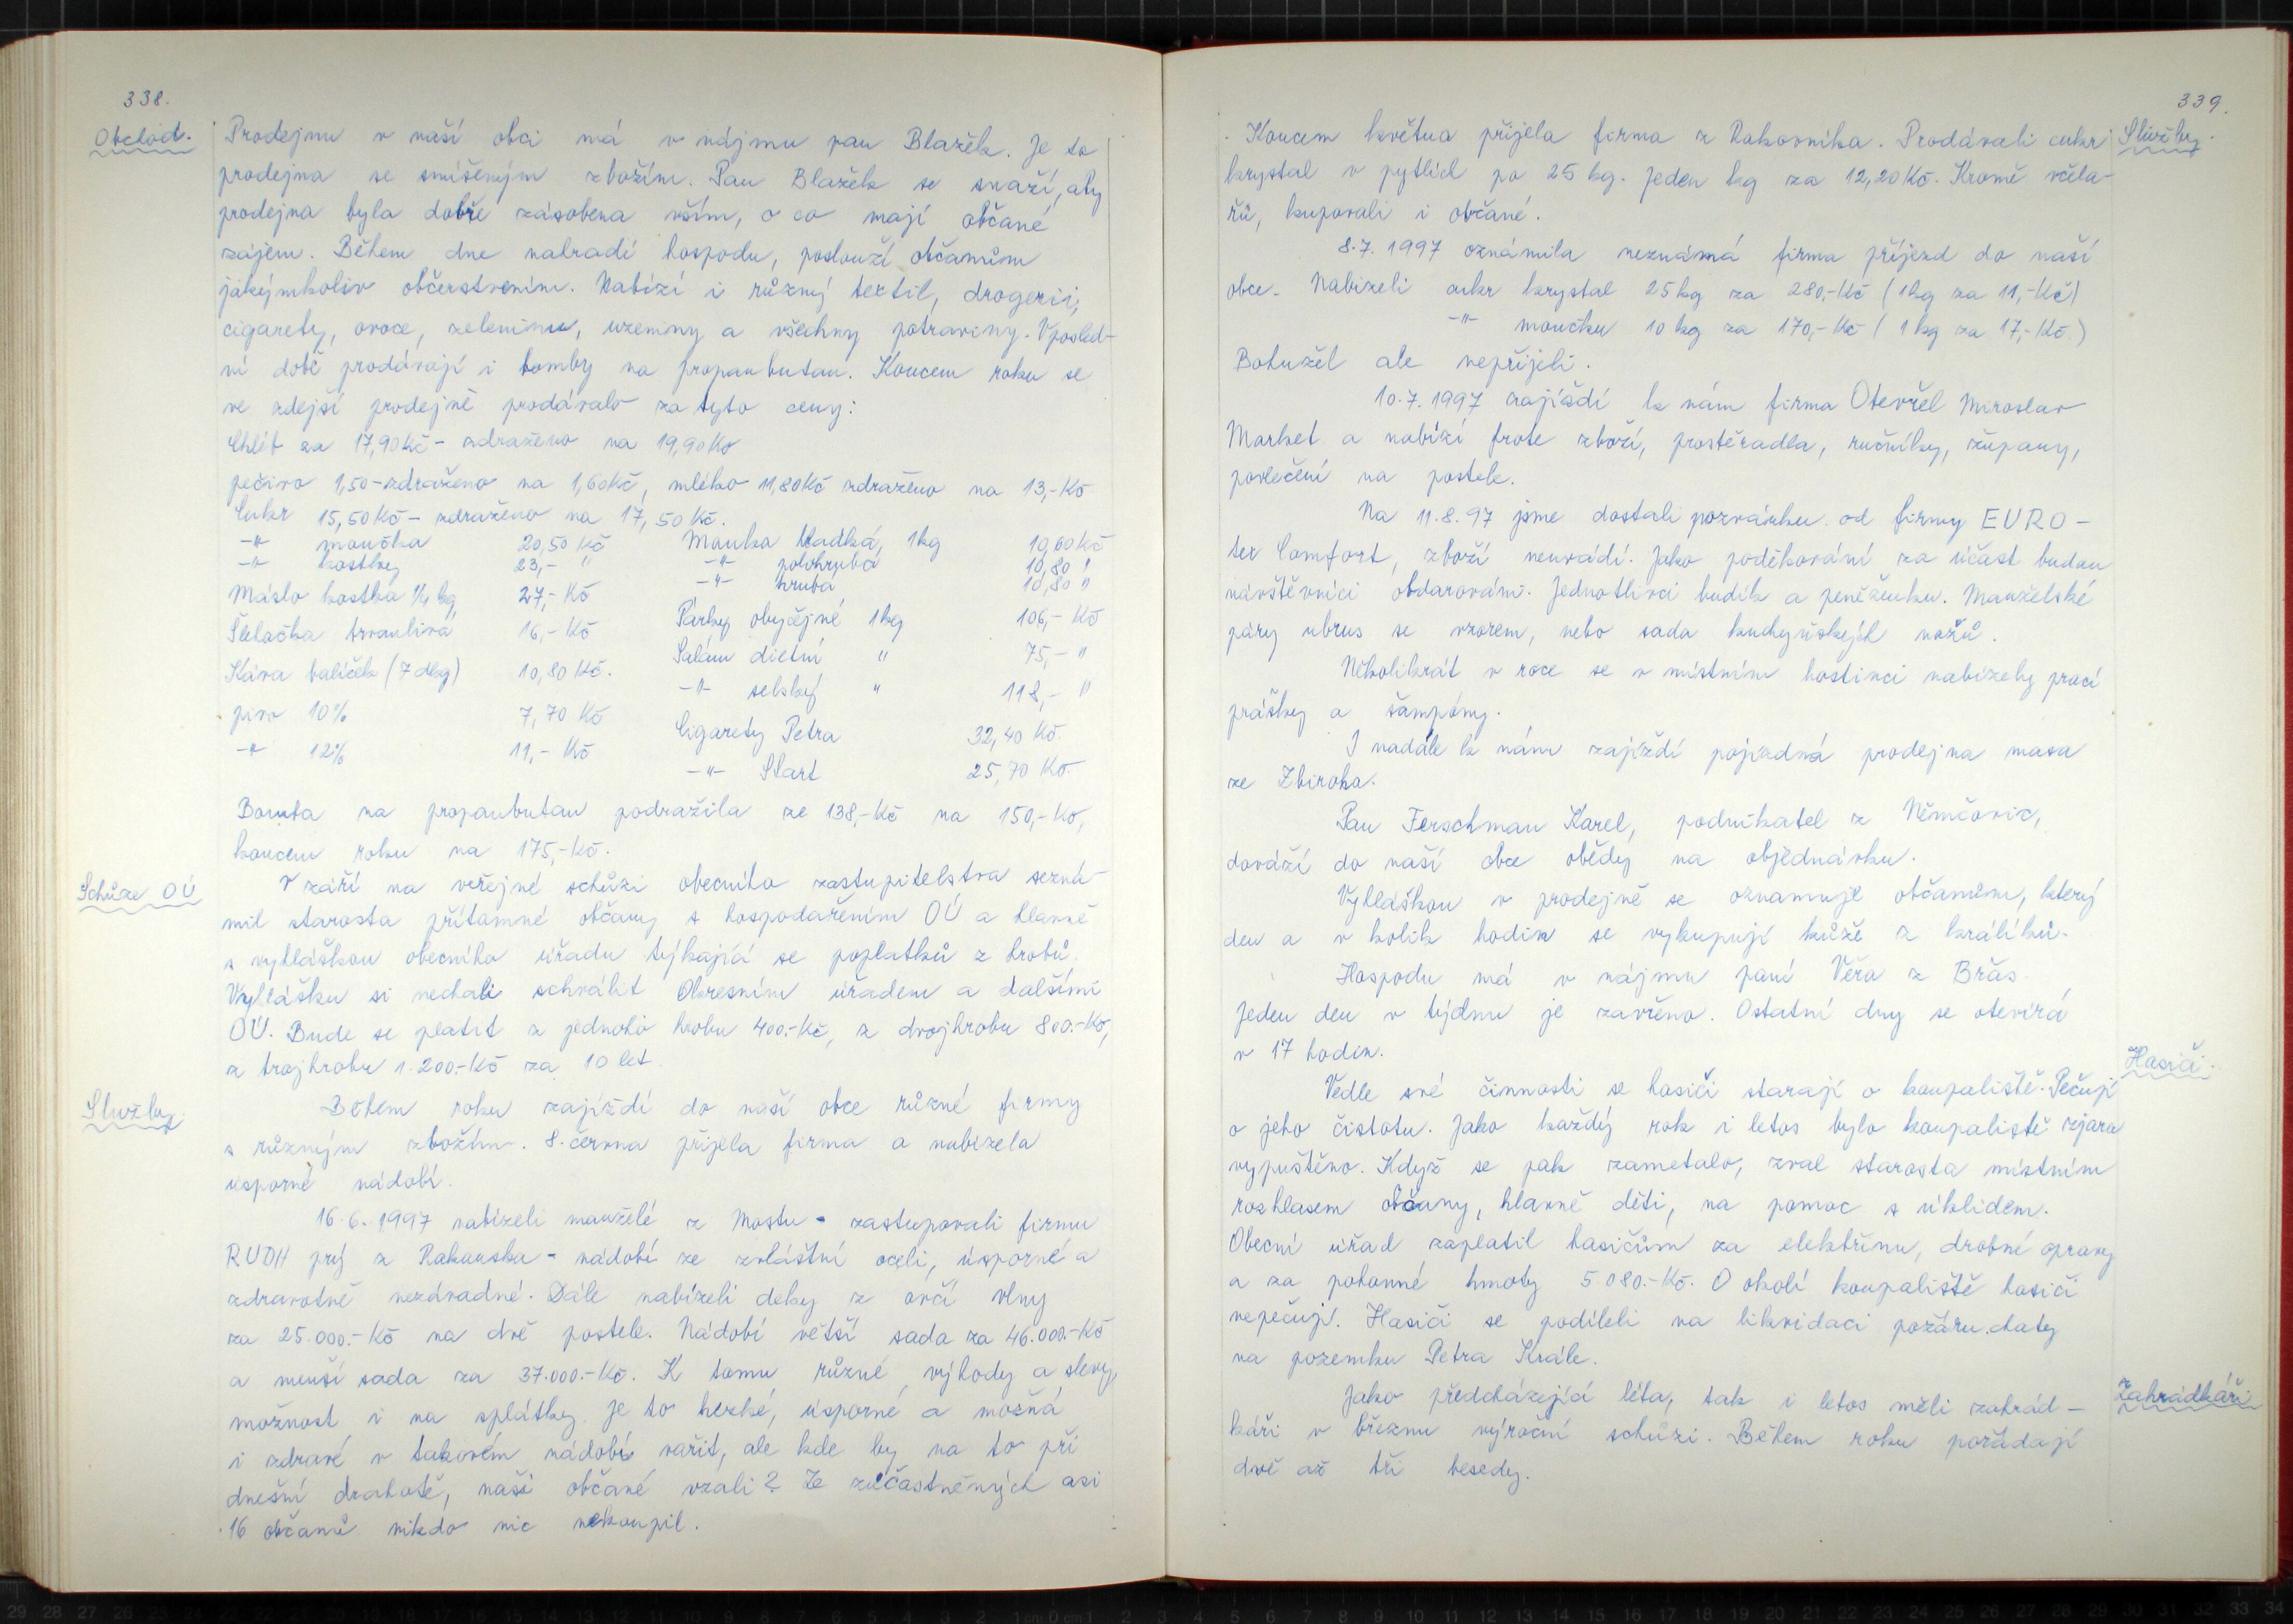 338.
Obchod.
Prodejnu v naší obci má v nájmu pan Blažek. Je to
prodejna se smíšeným zbožím. Pan Blažek se snaží, aby
prodejna byla dobře zásobena vším, o co mají občané
zájem. Během dne nahradí hospodu, poslouží občanům
jakýmkoliv občerstvením. Nabízí i různý textil, drogerii,
cigarety, ovoce, zeleninu, uzeniny a všechny potraviny. V posled-
ní době prodávají i bomby na propanbutan. Koncem roku se
ve zdejší prodejně prodávalo za tyto ceny:
Chléb za 17,90 Kč - zdraženo na 19,90 Kč
pečivo 1,50 - zdraženo na 1,60 Kč, mléko 11,80 Kč zdraženo na 13,- Kč
Cukr 15,50 Kč - zdraženo na 17,50 Kč.
-"- moučka 20,50 Kč Mouka hladká, 1kg 10,60 Kč
-"- kostky 23,- " -"- polohrubá 10,80 "
Máslo kostka 1/4 kg 27,- Kč -"- hrubá 10,80 "
Šlehačka trvanlivá 16,- Kč Párky obyčejné 1kg 106,- Kč
Káva balíček (7 dkg) 10,80 Kč. Salám dietní " 75,- "
pivo 10% 7,70 Kč -"- selský " 118,- "
-"- 12% 11,- Kč Cigarety Petra 32,40 Kč.
-"- Start 25,70 Kč.
Bomba na propanbutan podražila ze 138,- Kč na 150,- Kč,
koncem roku na 175,- Kč.
Schůze OÚ
V září na veřejné schůzi obecního zastupitelstva sezná-
mil starosta přítomné občany s hospodařením OÚ a hlavně
s vyhláškou obecního úřadu týkající se poplatků z hrobů.
Vyhlášku si nechali schválit Okresním úřadem a dalšími
OÚ. Bude se platit z jednoho hrobu 400.- Kč, z dvojhrobu 800.- Kč,
z trojhrobu 1.200.- Kč za 10 let.
Služby
Během roku zajíždí do naší obce různé firmy
s různým zbožím. 8. června přijela firma a nabízela
úsporné nádobí.
16.6.1997 nabízeli manželé z Mostu - zastupovali firmu
RUDH prý z Rakouska - nádobí ze zvláštní oceli, úsporné a
zdravotně nezávadné. Dále nabízeli deky z ovčí vlny
za 25.000.- Kč na dvě postele. Nádobí větší sada za 46.000.- Kč
a menší sada za 37.000.- Kč. K tomu různé výhody a slevy,
možnost i na splátky. Je to hezké, úsporné a možná
i zdravé v takovém nádobí vařit, ale kde by na to při
dnešní drahotě, naši občané vzali? Ze zúčastněných asi
16 občanů nikdo nic nekoupil.
339.
Služby
Koncem května přijela firma z Rakovníka. Prodávali cukr
krystal v pytlích po 25 kg. Jeden kg za 12,20 Kč. Kromě včela-
řů, kupovali i občané.
8.7. 1997 oznámila neznámá firma příjezd do naší
obce. Nabízeli cukr krystal 25 kg za 280,- Kč (1kg za 11,- Kč)
-"- moučku 10 kg za 170,- Kč (1 kg za 17,- Kč.)
Bohužel ale nepřijeli.
10.7.1997 zajíždí k nám firma Otevřel Miroslav
Market a nabízí frote zboží, prostěradla, ručníky, župany,
povlečení na postele.
Na 11.8.97 jsme dostali pozvánku od firmy EURO-
tex Comfort, zboží neuvádí. Jako poděkování za účast budou
návštěvníci obdarováni. Jednotlivci budík a peněženku. Manželské
páry ubrus se vzorem, nebo sada kuchyňských nožů.
Několikrát v roce se v místním hostinci nabízely prací
prášky a šampóny.
I nadále k nám zajíždí pojízdná prodejna masa
ze Zbiroha.
Pan Ferschman Karel, podnikatel z Němčovic,
dováží do naší obce obědy na objednávku.
Vyhláškou v prodejně se oznamuje občanům, který
den a v kolik hodin se vykupují kůže z králíků.
Hospodu má v nájmu paní Věra z Břas.
Jeden den v týdnu je zavřeno. Ostatní dny se otevírá
v 17 hodin.
Hasiči.
Vedle své činnosti se hasiči starají o koupaliště. Pečují
o jeho čistotu. Jako každý rok i letos bylo koupaliště zjara
vypuštěno. Když se pak zametalo, zval starosta místním
rozhlasem občany, hlavně děti, na pomoc s úklidem.
Obecní úřad zaplatil hasičům za elektřinu, drobné opravy
a za pohonné hmoty 5.080.- Kč. O okolí koupaliště hasiči
nepečují. Hasiči se podíleli na likvidaci požáru chaty
na pozemku Petra Krále.
Zahrádkáři
Jako předcházející léta, tak i letos měli zahrád-
káři v březnu výroční schůzi. Během roku pořádají
dvě až tři besedy.